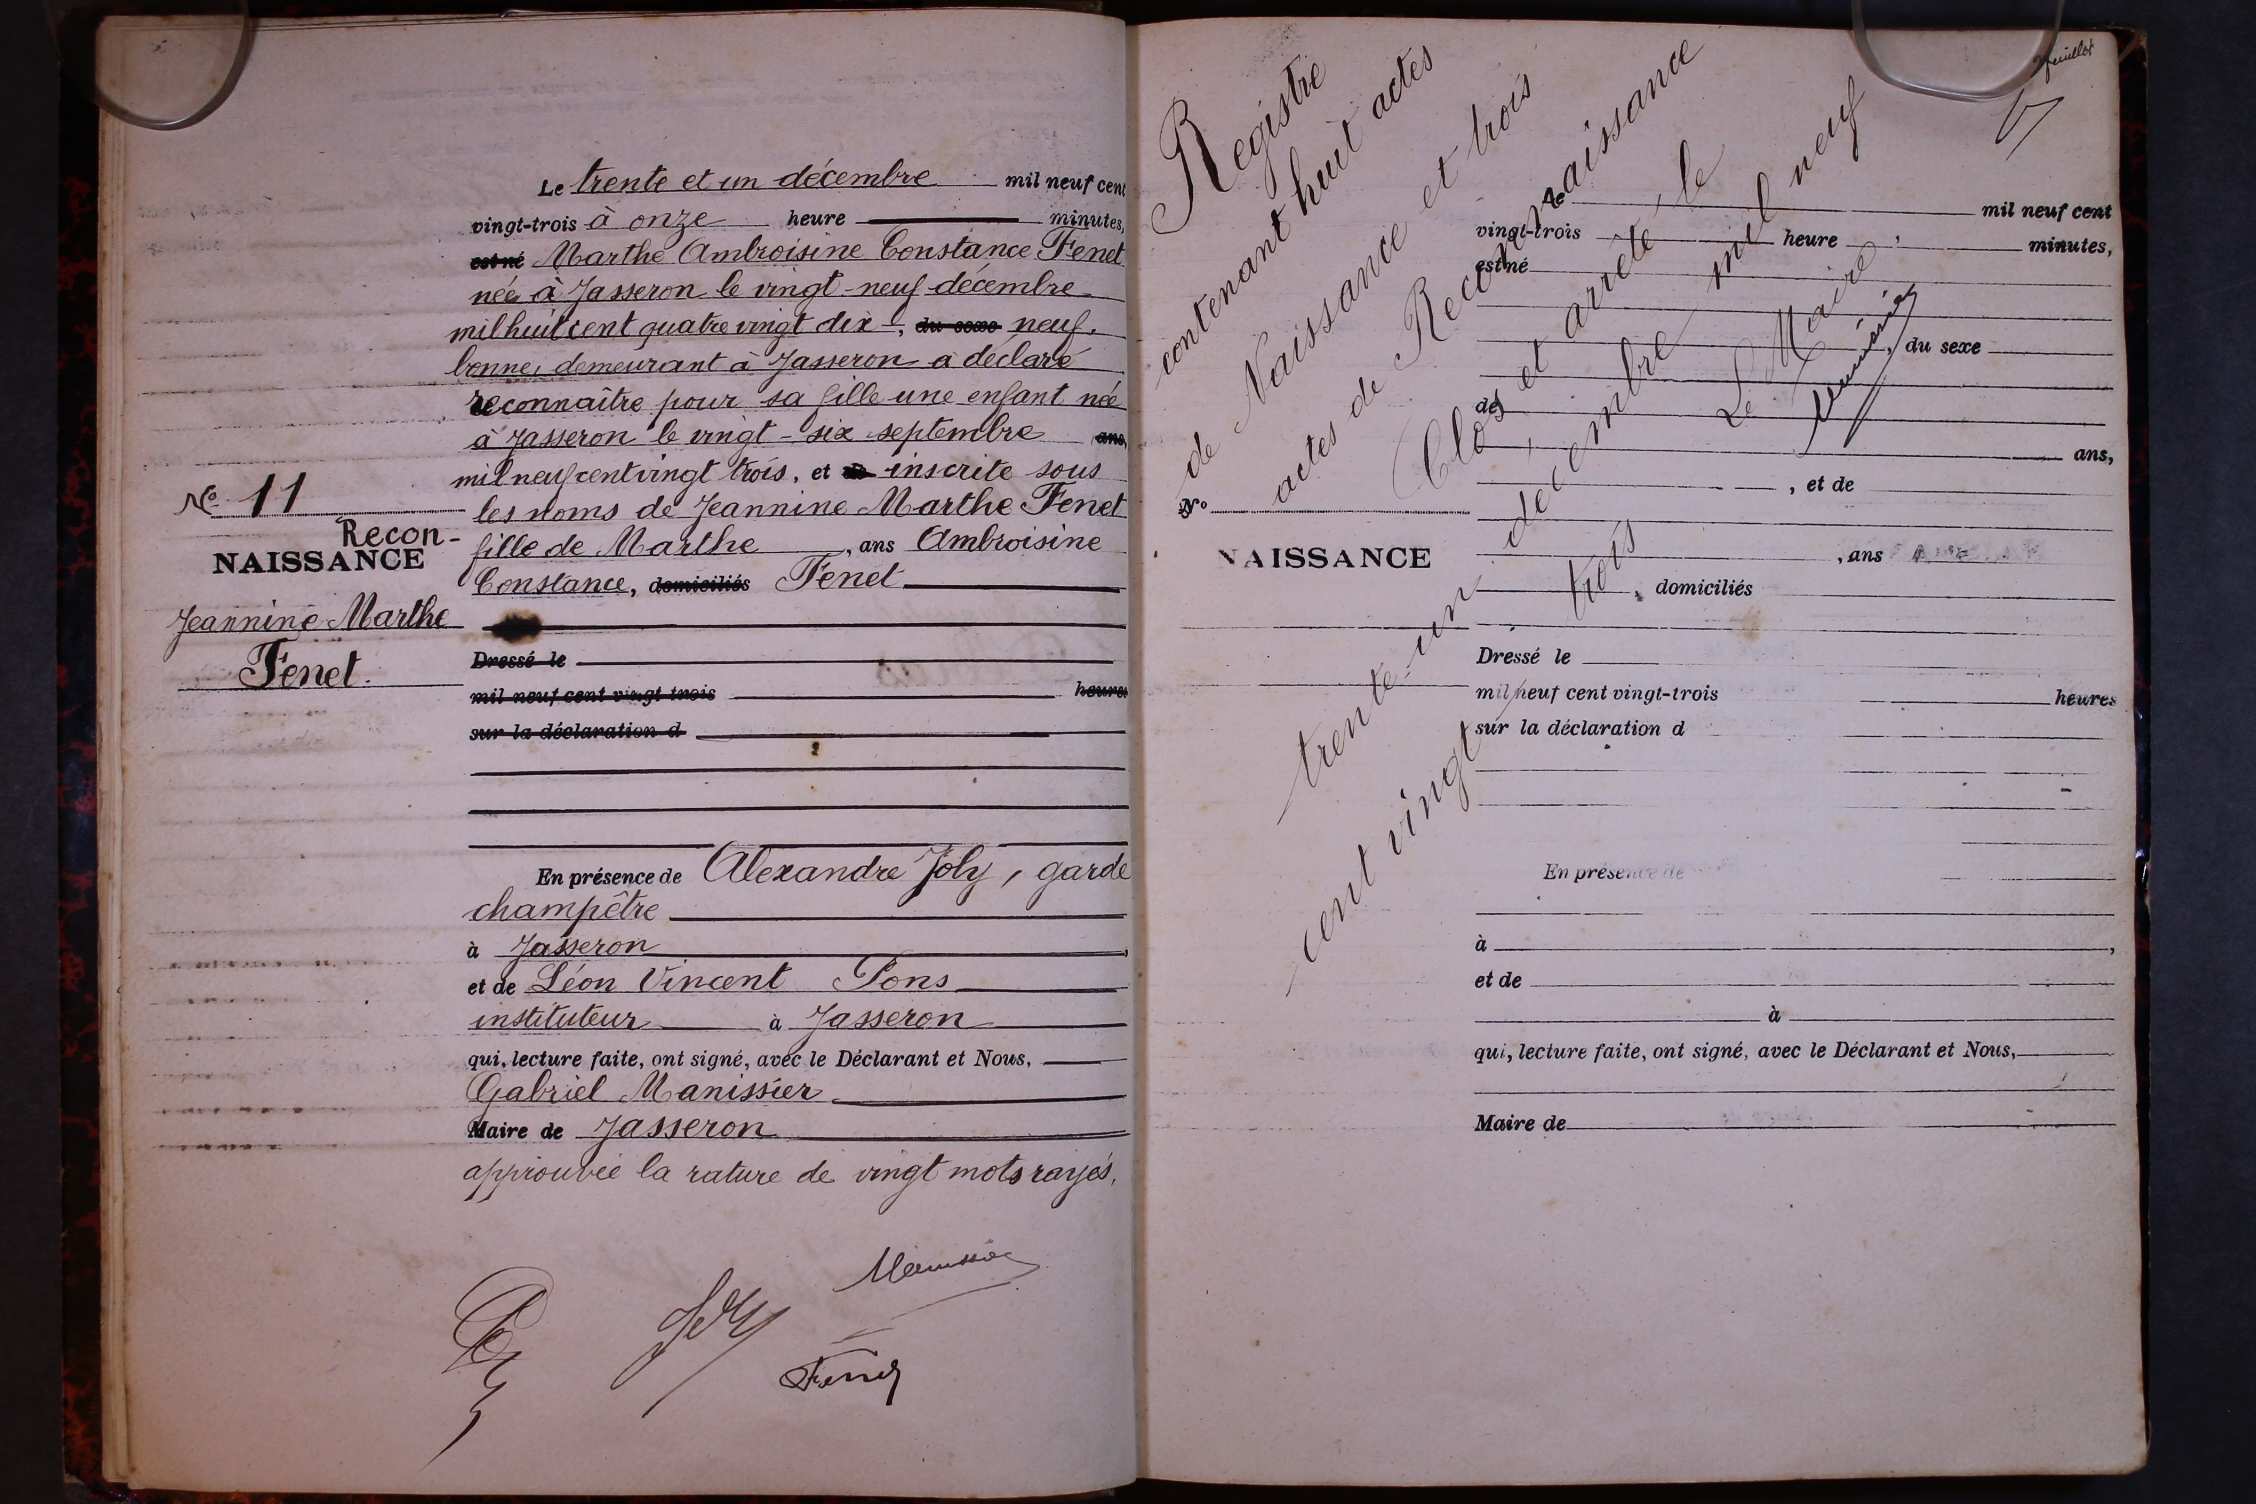 Le trente et un décembre mil neuf cent
vingt-trois à onze heure minutes,
est né Marthe Ambroisine Constance Fenet
née à Jasseron le vingt-neuf décembre
mil huit cent quatre vingt dix-, du sexe neuf.
bonne, demeurant à Jasseron a déclaré
reconnaître pour sa fille une enfant née
à Jasseron le vingt-six septembre ans,
mil neuf cent vingt trois, et de inscrite sous
les noms de Jeannine Marthe Fenet
fille de Marthe , ans Ambroisine
Constance, domiciliés Fenet
No. 11
Recon-
NAISSANCE
Jeannine Marthe
Fenet.
Dressé le
mil neuf cent vingt-trois heures
sur la déclaration d
En présence de Alexandre Joly, garde
champêtre
à Jasseron ,
et de Léon Vincent Pons
instituteur à Jasseron
qui, lecture faite, ont signé, avec le Déclarant et Nous,
Gabriel Manissier
Maire de Jasseron
approuvée la rature de vingt mots rayés.
Manissier
Joly
Fenet
feuillet
Registre
contenant huit actes
de Naissance et trois
actes de Reconnaissance
Clos et arrêté le
trente-un décembre mil neuf
cent vingt trois
Le Maire
Manissier
Le mil neuf cent
vingt-trois heure minutes,
est né
, du sexe
de
ans,
, et de
No.
NAISSANCE
, ans
, domiciliés
Dressé le
mil neuf cent vingt-trois heures
sur la déclaration d
En présence de
à ,
et de
à
qui, lecture faite, ont signé, avec le Déclarant et Nous,
Maire de